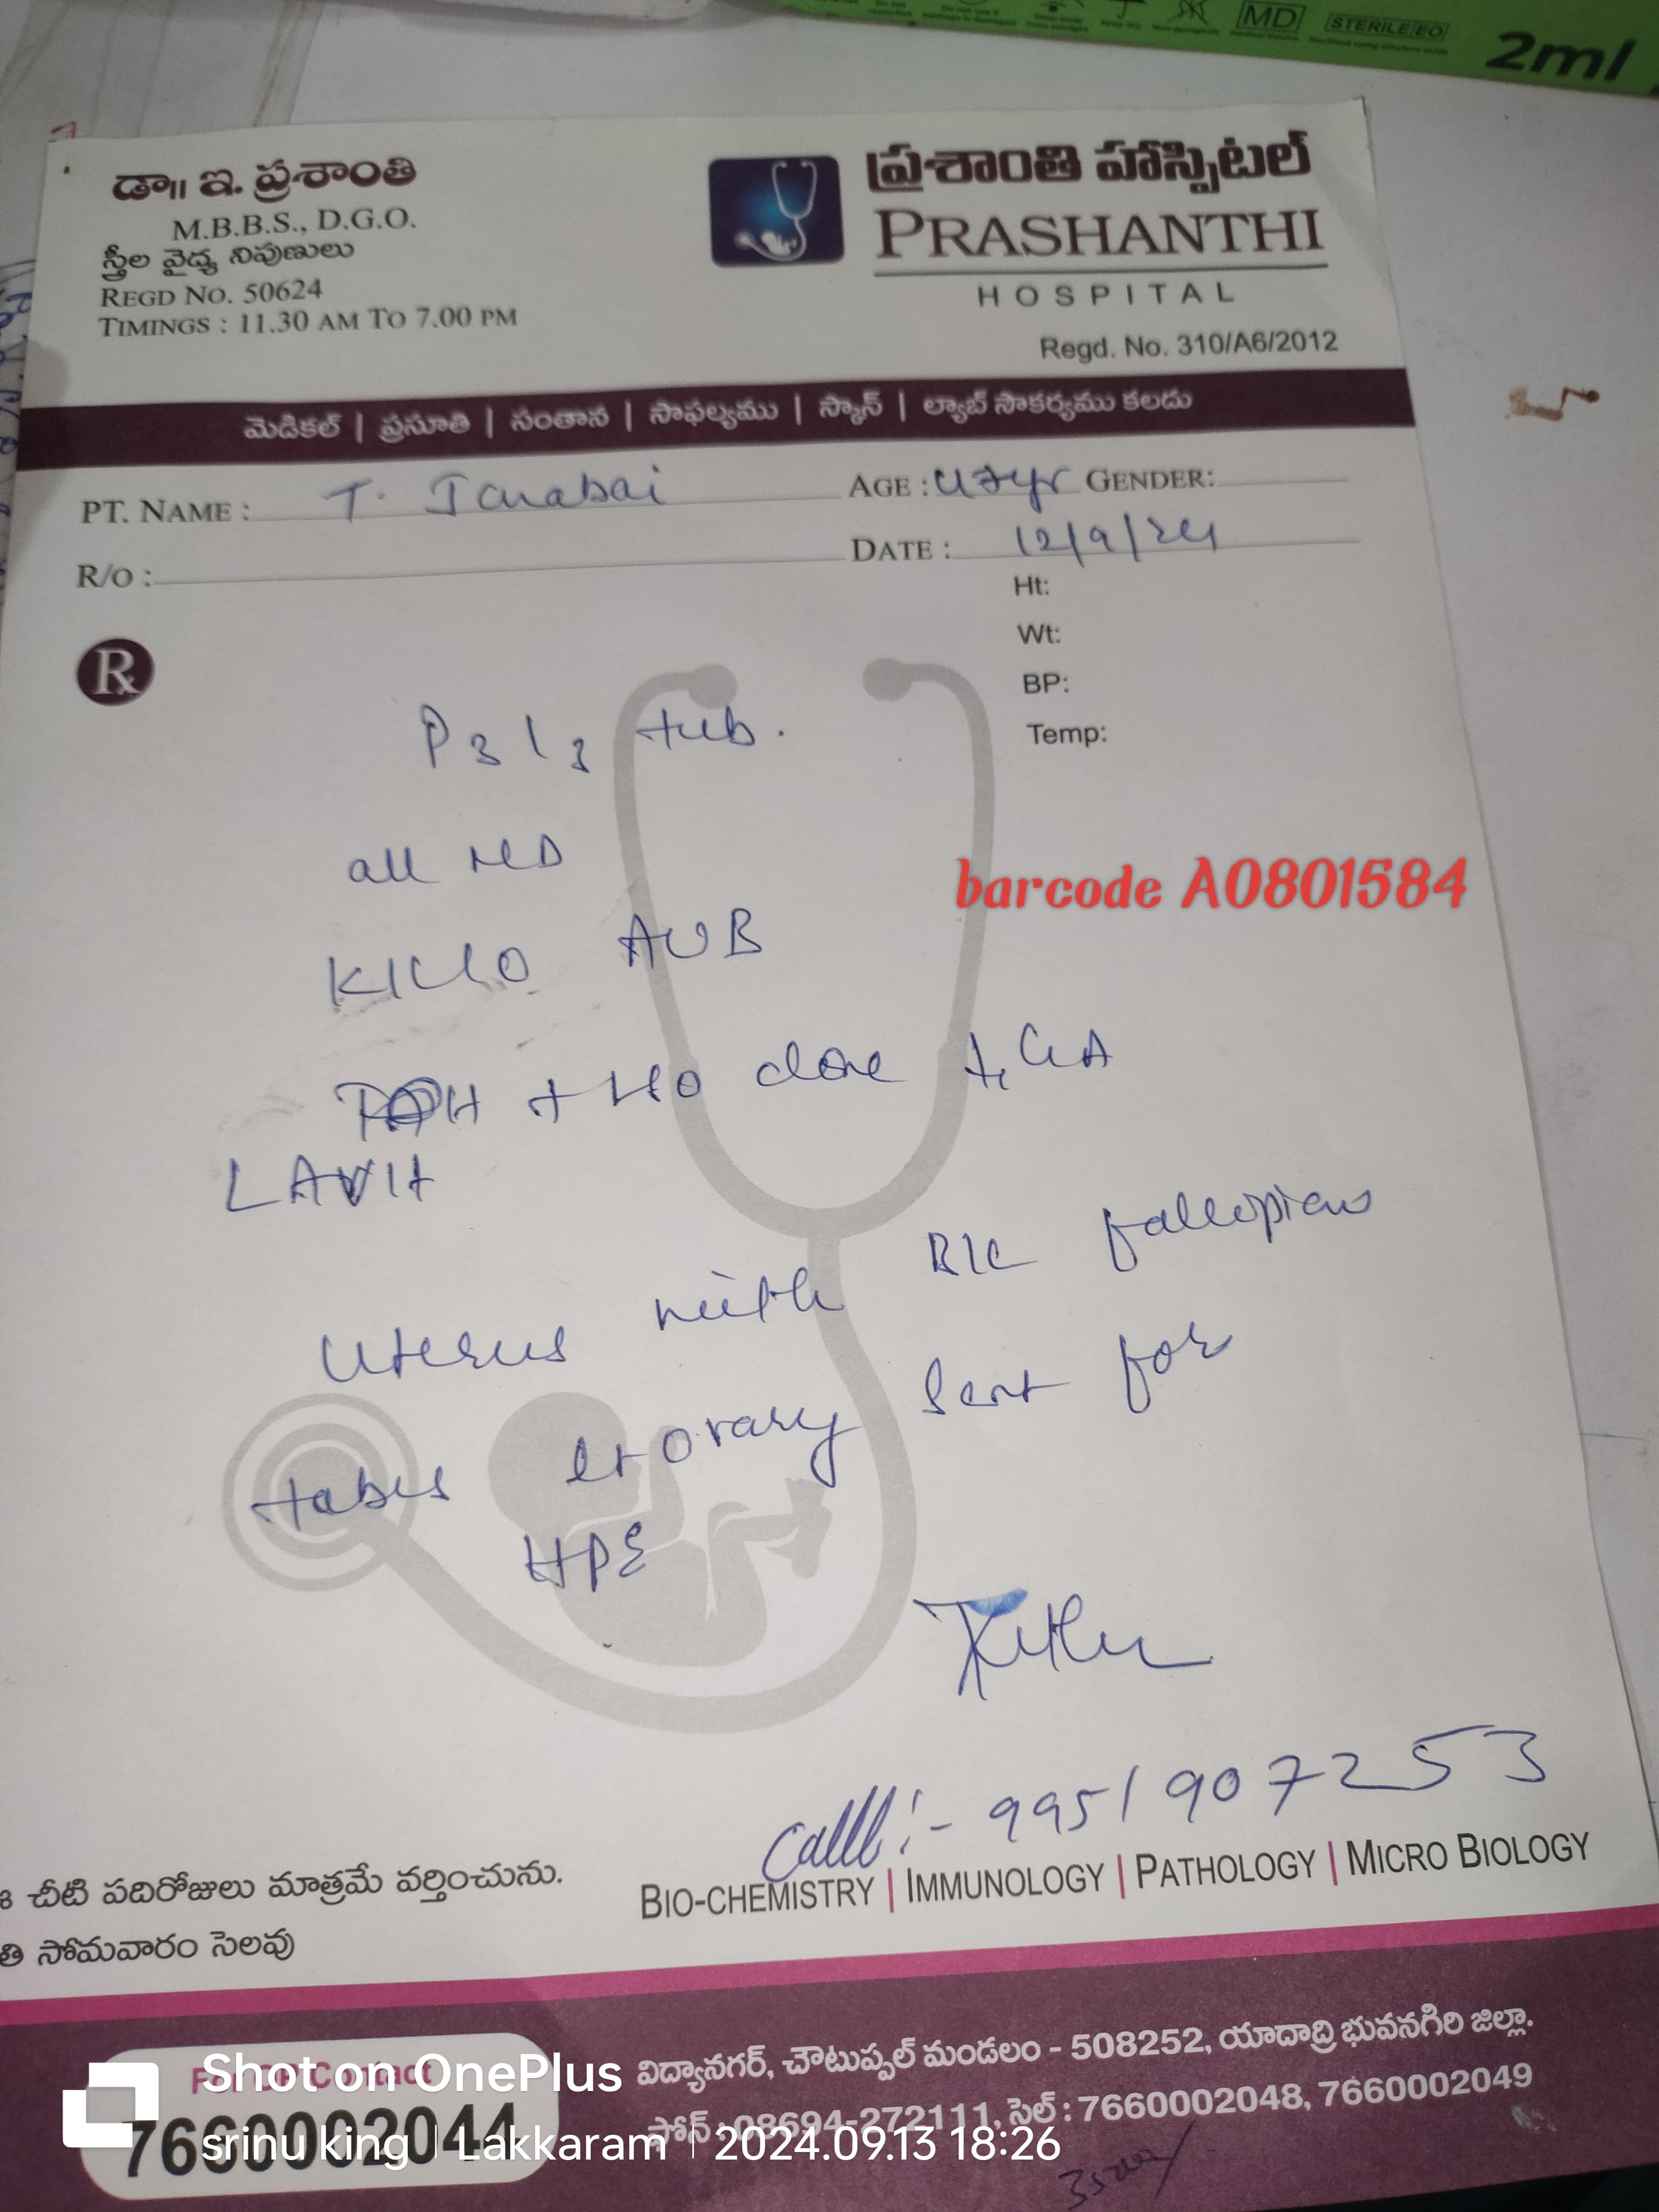 MD
STERILE EO
2ml
డా॥ ఇ. ప్రశాంతి
M.B.B.S., D.G.O.
స్త్రీల వైద్య నిపుణులు
REGD NO. 50624
TIMINGS : 11.30 AM TO 7.00 PM
ప్రశాంతి హాస్పిటల్
PRASHANTHI
HOSPITAL
Regd. No. 310/A6/2012
మెడికల్ | ప్రసూతి | సంతాన | సాఫల్యము | స్కాన్ | ల్యాబ్ సౌకర్యము కలదు
PT. NAME : T. AGE : 47yr GENDER:
R/O : DATE : 12/9/24
Ht:
Wt:
BP:
Temp:
Rx
P3 L3 tub.
all ND
barcode A0801584
K/C/O AUB
H + done GA
LAVH
Uterus with B/L fallopian
tubes ovary sent for
HPE
Calll :- 9951907253
చీటి పదిరోజులు మాత్రమే వర్తించును.
BIO-CHEMISTRY | IMMUNOLOGY | PATHOLOGY | MICRO BIOLOGY
తి సోమవారం సెలవు
7660002044
విద్యానగర్, చౌటుప్పల్ మండలం - 508252, యాదాద్రి భువనగిరి జిల్లా.
ఫోన్ : 08694-272111, సెల్ : 7660002048, 7660002049
Shot on OnePlus
srinu king | Lakkaram | 2024.09.13 18:26